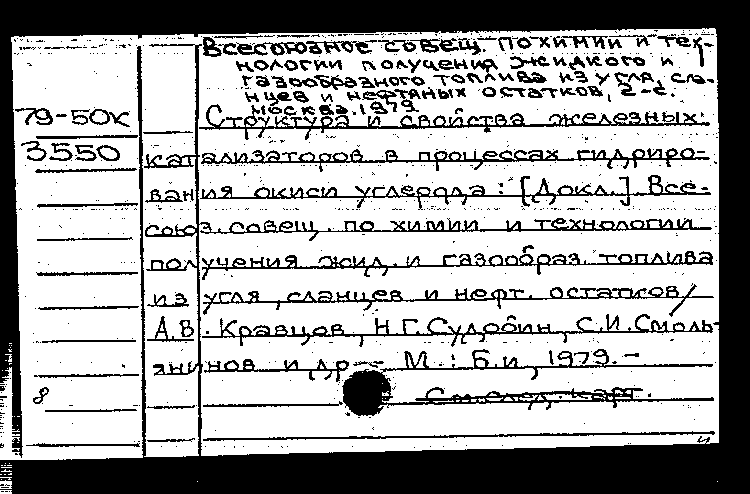 Всесоюзное совещ. по химии и тех-
нологии получения жидкого и
газообразного топлива из угля, сла-
нцев и нефтяных остатков, 2-е.
Москва. 1979
79-50к Структура и свойства железных
3550 катализаторов в процессах гидриро-
вания окиси углерода: [Докл.] Все-
союз. совещ. по химии и технологии
получения жид. и газообраз. топлива
из угля, сланцев и нефт. остатков/
А.В. Кравцов, Н.Г. Судобин, С.И. Смоль-
янинов и др.-- М.: Б.и, 1979.-
8 См. след. карт.